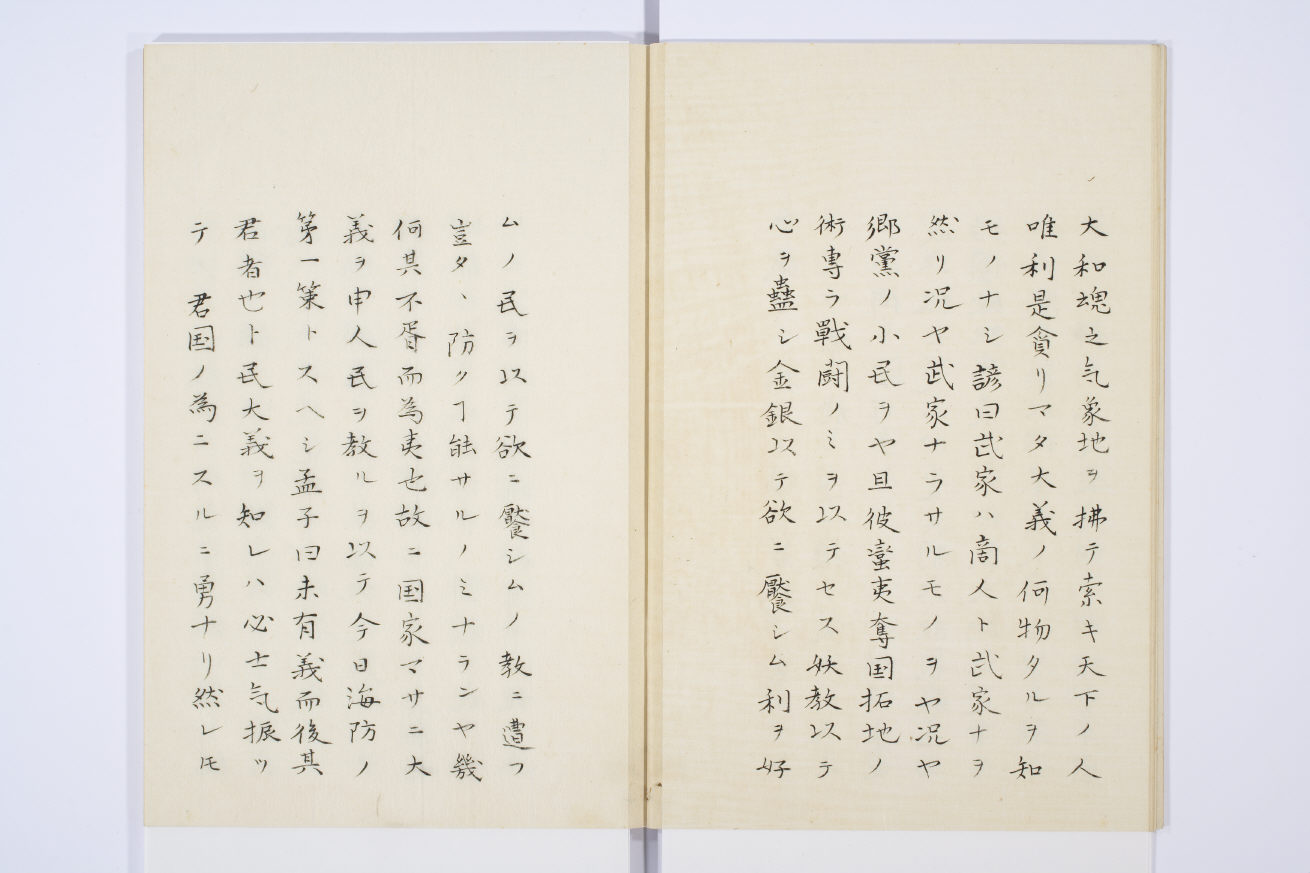 大和魂之気象地ヲ拂テ索キ天下ノ人
唯利是貪リマタ大義ノ何物タルヲ知
モノナシ諺曰武家ハ商人ト武家ナヲ
然リ况ヤ武家ナラサルモノヲヤ况ヤ
郷黨ノ小民ヲヤ且彼蛮夷奪国拓地ノ
術専ラ戰闘ノミヲ以テセス妖教以テ
心ヲ蠱シ金銀以テ欲ニ饜シム利ヲ好
ムノ民ヲ以テ欲ニ饜シムノ教ニ遭フ
豈タヽ防クヿ能サルノミナランヤ幾
何其不胥而為夷也故ニ国家マサニ大
義ヲ申人民ヲ教ルヲ以テ今日海防ノ
第一策トスヘシ孟子曰未有義而後其
君者也ト民大義ヲ知レハ必士気振ツ
テ 君国ノ為ニスルニ勇ナリ然レ𪜈